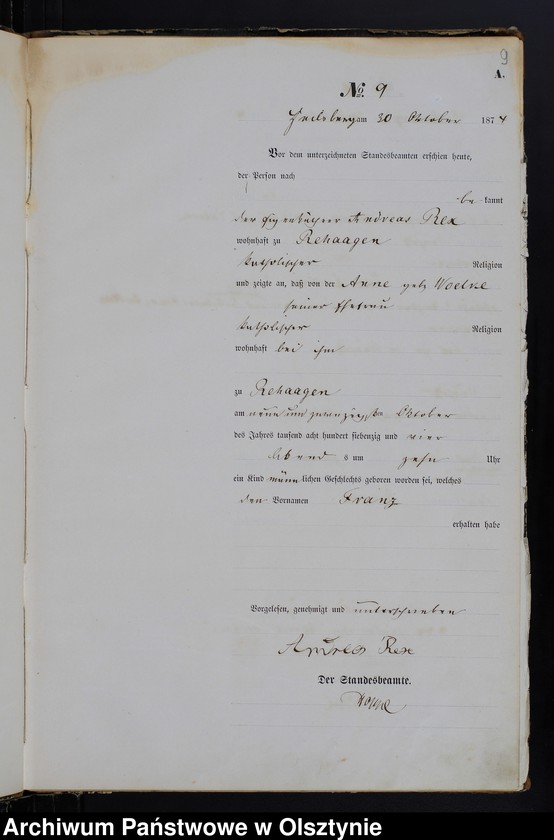 9
A.
No. 9
Heilsberg am 30 Oktober 1874
Vor dem unterzeichneten Standesbeamten erschien heute,
der Person nach
be kannt
der Andreas Rex
wohnhaft zu Rehaagen
katholischer Religion
und zeigte an, daß von der Anne geb Woelke
seiner Ehefrau
katholischer Religion
wohnhaft bei ihm
zu Rehaagen
am neun und zwanzigsten Oktober
des Jahres tausend acht hundert siebenzig und vier
Abend s um zehn Uhr
ein Kind männlichen Geschlechts geboren worden sei, welches
den Vornamen Franz
erhalten habe
Vorgelesen, genehmigt und unterschrieben
Andreas Rex
Der Standesbeamte.
Archiwum Państwowe w Olsztynie